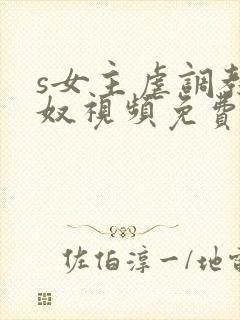 s女主虐調教
奴視頻免費
佐伯淳一/地